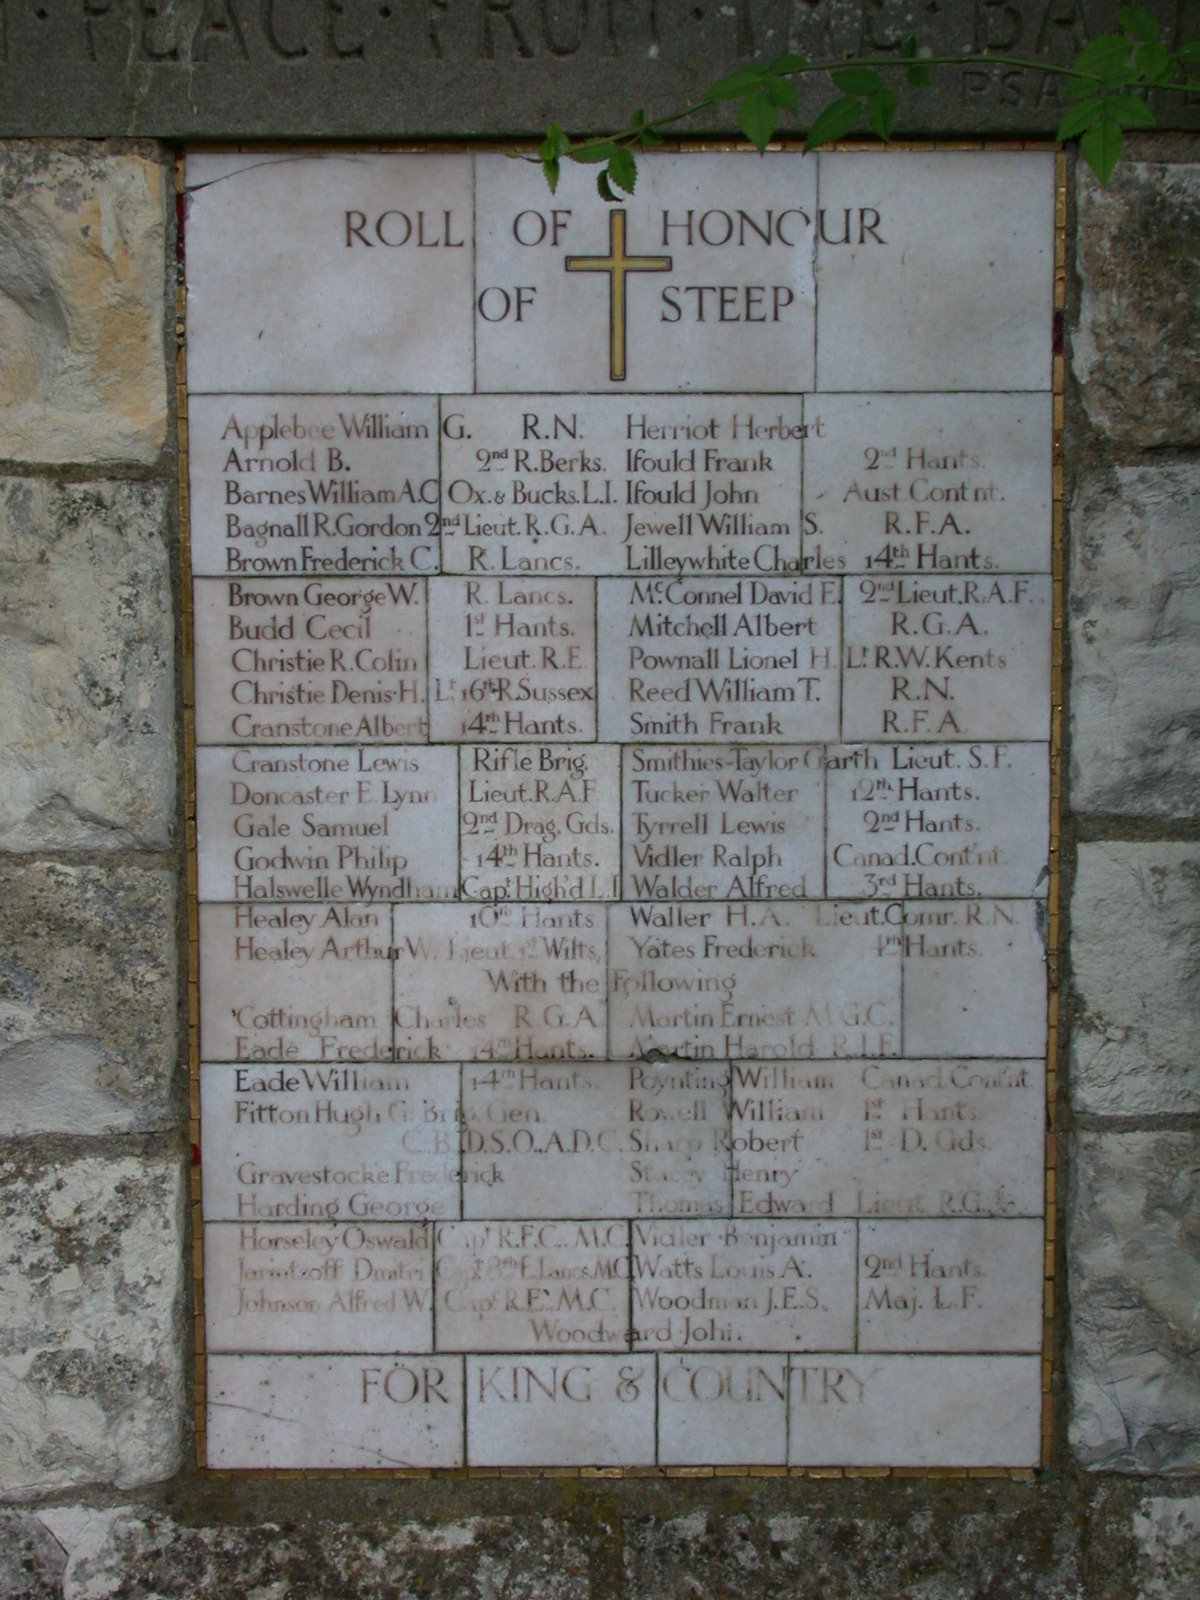 PEACE · FROM · THE · BA
ROLL OF HONOUR
OF STEEP
Applebee William G. R.N. Herriot Herbert
Arnold B. 2nd R.Berks. Ifould Frank 2nd Hants.
Barnes William A.C Ox. & Bucks. L.I. Ifould John Aust. Cont'nt.
Bagnall R.Gordon 2nd Lieut. R.G.A. Jewell William S. R.F.A.
Brown Frederick C. R. Lancs. Lilleywhite Charles 14th Hants.
Brown George W. R. Lancs. Mc.Connel David F. 2nd Lieut. R.A.F.
Budd Cecil 1st Hants. Mitchell Albert R.G.A.
Christie R.Colin Lieut. R.E. Pownall Lionel H. Lt. R.W.Kents
Christie Denis.H. Lt. 16th R.Sussex Reed William T. R.N.
Cranstone Albert 14th Hants. Smith Frank R.F.A.
Cranstone Lewis Rifle Brig. Smithies-Taylor Garth Lieut. S.F.
Doncaster E. Lynn Lieut. R.A.F. Tucker Walter 12th Hants.
Gale Samuel 2nd Drag. Gds. Tyrrell Lewis 2nd Hants.
Godwin Philip 14th Hants. Vidler Ralph Canad. Cont'nt.
Halswelle Wyndham Capt. High'd L.I Walder Alfred 3rd Hants.
Healey Alan 10th Hants. Waller H.A. Lieut. Comr. R.N.
Healey Arthur W. Lieut. 1st Wilts. Yates Frederick 4th Hants.
With the Following
Cottingham Charles R.G.A. Martin Ernest M.G.C.
Eade Frederick 14th Hants. Martin Harold
Eade William 14th Hants. Poynting William Canad. Cont'nt.
Fitton Hugh G. Brig. Gen. Rowell William 1st Hants.
C.B. D.S.O., A.D.C. Sharp Robert 1st D. Gds.
Gravestocke Frederick Stacey Henry
Harding George Thomas Edward Lieut. R.G.
Horseley Oswald Capt. R.F.C., M.C. Vidler Benjamin
Jarintzoff Dmitri Capt 8th E.Lancs. M.C. Watts Louis A. 2nd Hants.
Johnson Alfred W. Capt. R.E. M.C. Woodman J.E.S. Maj. L.F.
Woodward John.
FOR KING & COUNTRY